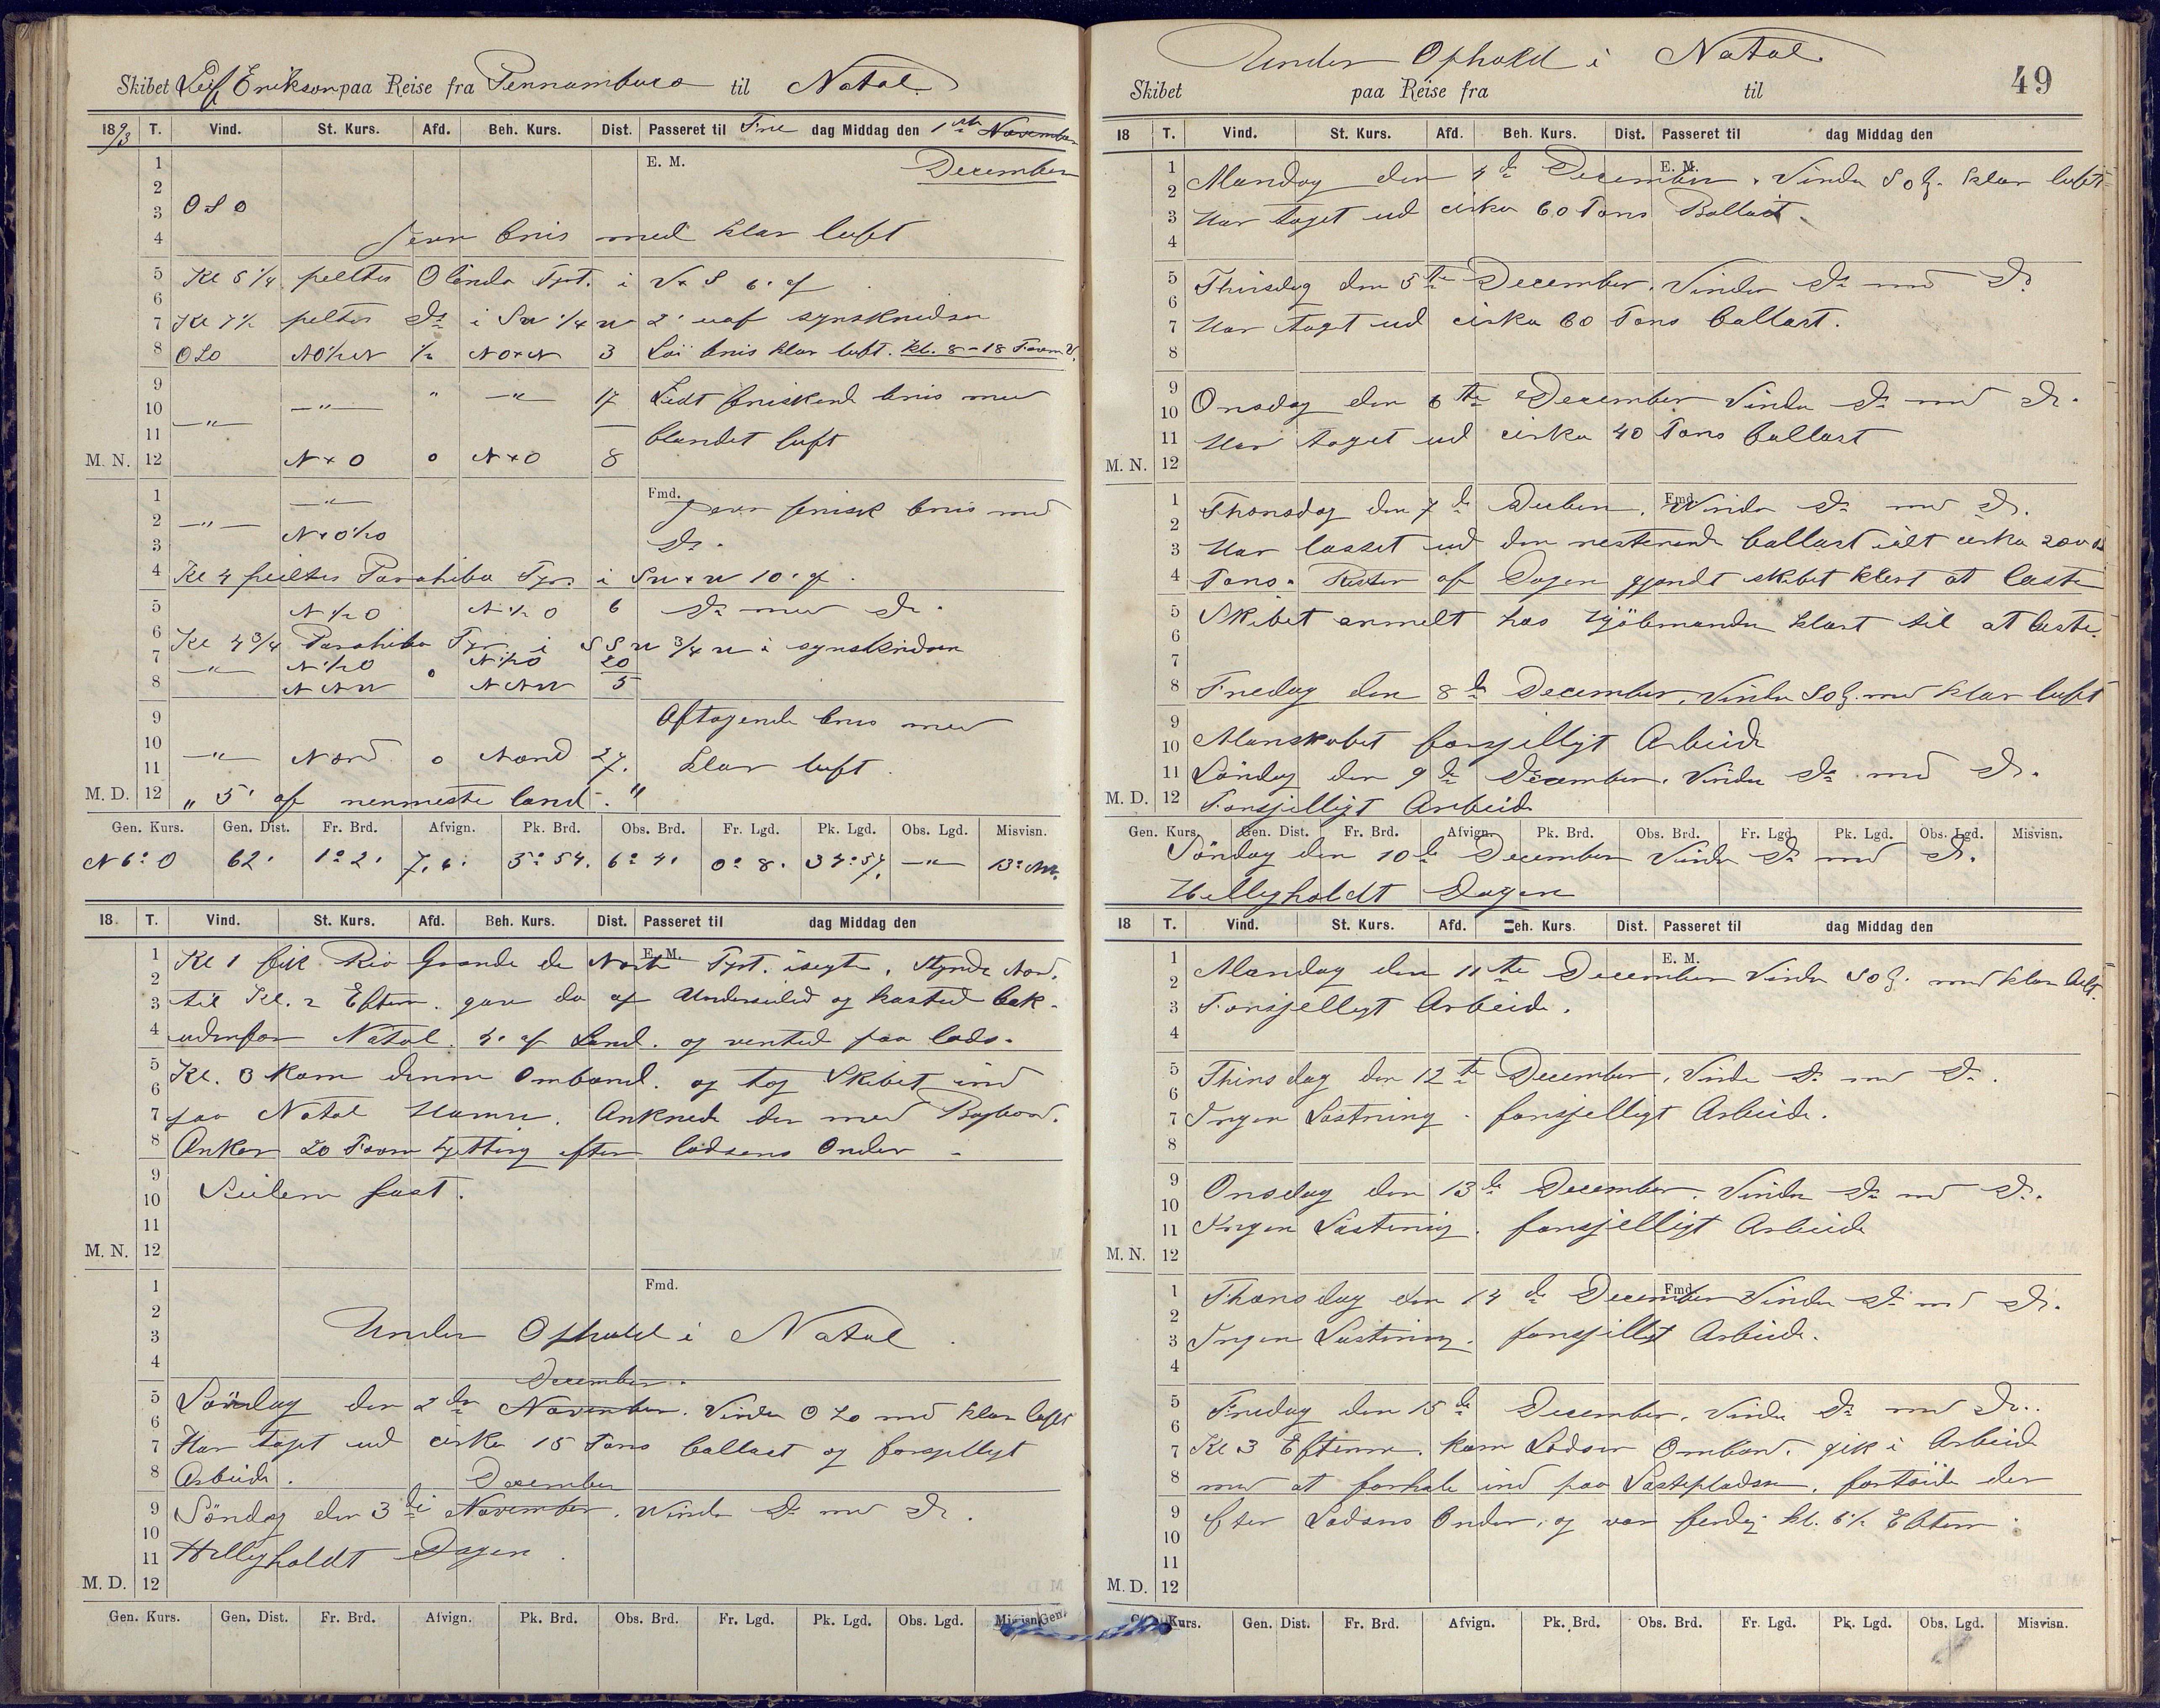 Skibet Leif Erikson paa Reise fra Pernambuco til Natal.
18 93 T. Vind. St. Kurs. Afd. Beh. Kurs. Dist. Passeret til Fre dag Middag den 1ste November
December
1 E. M.
2
3 OSO
4 Jevn bris med klar luft
5 Kl 5 1/4 peiltes Olinda Fyrt. i V x S 6' af
6
7 Kl 7 1/2 peiltes Do i SW 1/4 W 2' uaf synskredsen
8 OSO NO 1/2 N 1/2 NOxN 3 Löi bris klar luft. Kl. 8 - 18 Favn V.
9 " — " —
10 — " — 17 Lidt friskend bris med
11 — " — blandet luft
M. N. 12 N x O 0 N x O 8
1 — " — Fmd. Jevn frisk bris med
2 — " — N x O 1/2 O
3 Do.
4 Kl 4 peiltes Parahiba Fyr i SW x W 10' af.
5 N 1/2 O N 1/2 O 6 Do med Do.
6 Kl 4 3/4 Parahiba Fyr i SSW 3/4 W i synskredsen
7 — " — N 1/2 O 0 N 1/2 O 20
8 NNW NNW 5
9 Aftagende bris med
10
11 — " — Nord 0 Nord 27. klar luft.
M. D. 12 " 5' af nermeste land. "
Gen. Kurs. Gen. Dist. Fr. Brd. Afvign. Pk. Brd. Obs. Brd. Fr. Lgd. Pk. Lgd. Obs. Lgd. Misvisn.
N 6° O 62' 1° 2' 7.6' 5° 54' 6° 4' 0° 8' 34° 57' — " — 13° NW.
18 T. Vind. St. Kurs. Afd. Beh. Kurs. Dist. Passeret til dag Middag den
1 Kl 1 fik Rio Grande de Norte Fyrt. isegte. Styrede Nord. E. M.
2
3 til Kl. 2 Efterm. gav da af Underseiled og kasted bak.
4 udenfor Natal. 4' af Land. og vented paa lods.
5 Kl. 3 kom denne Ombord. og tog Skibet ind
6
7 paa Natal Havn. Ankrede der med Bagbord.
8 Anker 20 Favn Kjetting efter lodsens Order -
9
10 Seilene fast.
11
M. N. 12
1 Fmd.
2
3 Under Ophold i Natal.
4
December.
5 Lördag den 2den November. Vinden OSO med klar luft
6
7 Har taget ud cirka 15 Tons ballast og forsjelligt
8 Arbeide.
December
9 Söndag den 3die November. Vinden Do med Do.
10
11 Helligholdt Dagen.
M. D. 12
Gen. Kurs. Gen. Dist. Fr. Brd. Afvign. Pk. Brd. Obs. Brd. Fr. Lgd. Pk. Lgd. Obs. Lgd. Misvisn.
Under Ophold i Natal.
Skibet paa Reise fra til 49
18 T. Vind. St. Kurs. Afd. Beh. Kurs. Dist. Passeret til dag Middag den
1 Mandag den 4de December. Vinden SOl. klar luft E. M.
2
3 Har taget ud cirka 60 Tons Ballast.
4
5 Thirsdag den 5te December. Vinden Do med Do
6
7 Har taget ud cirka 60 Tons ballast.
8
9
10 Onsdag den 6te December Vinden Do med Do.
11 Har taget ud cirka 40 Tons ballast
M. N. 12
1 Thorsdag den 7de Decbem. Vinden Do med Do. Fmd.
2
3 Har losset ud den resterende ballast ialt cirka 200
4 Tons. Resten af Dagen gjordt skibet klart at laste
5 Skibet anmelt hos Kjöbmanden klart til at laste.
6
7
8 Fredag den 8de December. Vinden SOl. med klar luft
9
10 Manskabet forsjelligt Arbeide
11 Löndag den 9de December. Vinden Do med Do.
M. D. 12 Forsjelligt Arbeide
Gen. Kurs. Gen. Dist. Fr. Brd. Afvign. Pk. Brd. Obs. Brd. Fr. Lgd. Pk. Lgd. Obs. Lgd. Misvisn.
Söndag den 10de December Vinden Do med Do.
Helligholdt Dagen
18 T. Vind. St. Kurs. Afd. Beh. Kurs. Dist. Passeret til dag Middag den
1 E. M.
2 Mandag den 11te December Vinden SOl. med klar luft.
3 Forsjelligt Arbeide.
4
5 Thirsdag den 12te December. Vinden Do med Do.
6
7 Ingen Lastning. forsjelligt Arbeide.
8
9
10 Onsdag den 13de December. Vinden Do med Do.
11 Ingen Lastning. forsjelligt Arbeide
M. N. 12
1 Thorsdag den 14de December Vinden Do med Do. Fmd.
2
3 Ingen Lastning. forsjelligt Arbeide.
4
5 Fredag den 15de December. Vinden Do med Do.
6
7 Kl 3 Efterm. kom Lodsen Ombord. gik i Arbeide
8 med at forhale ind paa Lastepladsen. fortöide der
9 efter Lodsens Order, og var ferdig kl. 6 1/2 Efterm.
10
11
M. D. 12
Kurs. Gen. Dist. Fr. Brd. Afvign. Pk. Brd. Obs. Brd. Fr. Lgd. Pk. Lgd. Obs. Lgd. Misvisn.